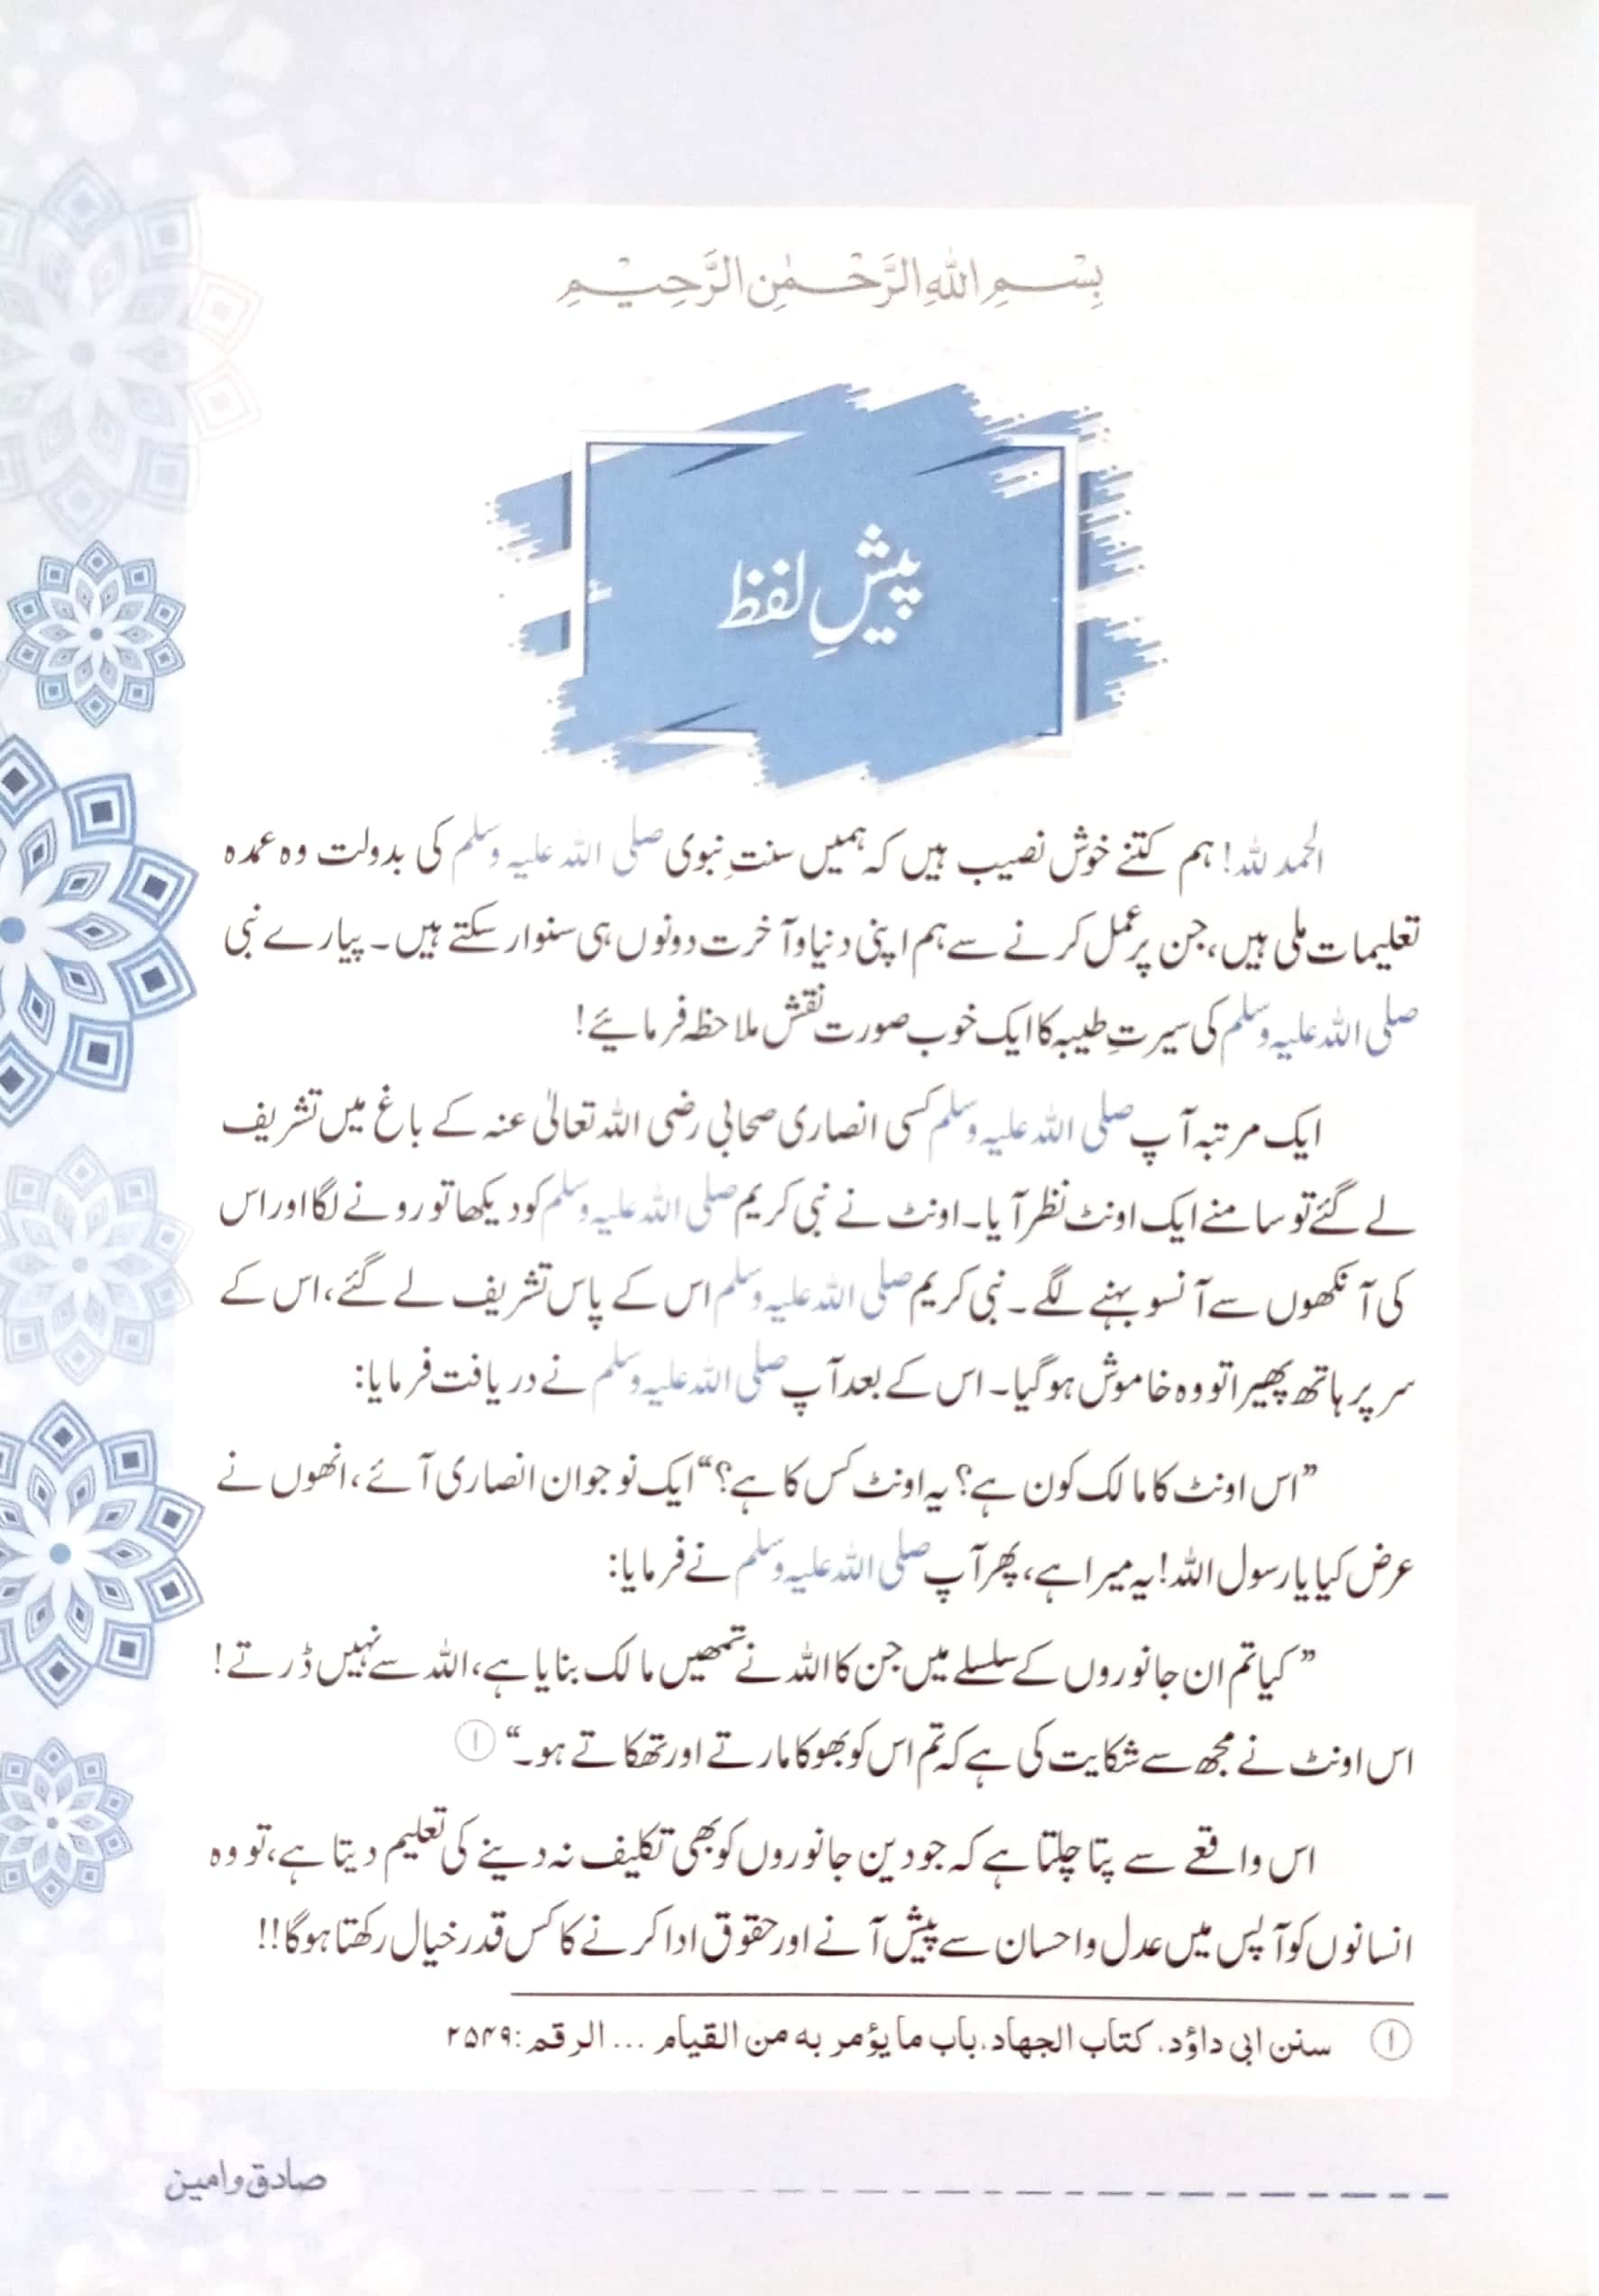 بِسْمِ اللهِ الرَّحْمٰنِ الرَّحِيْمِ
پیشِ لفظ
الحمد للہ! ہم کتنے خوش نصیب ہیں کہ ہمیں سنتِ نبوی صلی اللہ علیہ وسلم کی بدولت وہ عمدہ
تعلیمات ملی ہیں، جن پر عمل کرنے سے ہم اپنی دنیا و آخرت دونوں ہی سنوار سکتے ہیں۔ پیارے نبی
صلی اللہ علیہ وسلم کی سیرتِ طیبہ کا ایک خوب صورت نقش ملاحظہ فرمائیے!
ایک مرتبہ آپ صلی اللہ علیہ وسلم کسی انصاری صحابی رضی اللہ تعالیٰ عنہ کے باغ میں تشریف
لے گئے تو سامنے ایک اونٹ نظر آیا۔ اونٹ نے نبی کریم صلی اللہ علیہ وسلم کو دیکھا تو رونے لگا اور اس
کی آنکھوں سے آنسو بہنے لگے۔ نبی کریم صلی اللہ علیہ وسلم اس کے پاس تشریف لے گئے، اس کے
سر پر ہاتھ پھیرا تو وہ خاموش ہوگیا۔ اس کے بعد آپ صلی اللہ علیہ وسلم نے دریافت فرمایا:
”اس اونٹ کا مالک کون ہے؟ یہ اونٹ کس کا ہے؟“ ایک نوجوان انصاری آئے، انھوں نے
عرض کیا یا رسول اللہ! یہ میرا ہے، پھر آپ صلی اللہ علیہ وسلم نے فرمایا:
”کیا تم ان جانوروں کے سلسلے میں جن کا اللہ نے تمھیں مالک بنایا ہے، اللہ سے نہیں ڈرتے!
اس اونٹ نے مجھ سے شکایت کی ہے کہ تم اس کو بھوکا مارتے اور تھکاتے ہو۔“ ①
اس واقعے سے پتا چلتا ہے کہ جو دین جانوروں کو بھی تکلیف نہ دینے کی تعلیم دیتا ہے، تو وہ
انسانوں کو آپس میں عدل و احسان سے پیش آنے اور حقوق ادا کرنے کا کس قدر خیال رکھتا ہوگا!!
① سنن ابی داؤد، کتاب الجھاد، باب ما یؤمر بہ من القیام ... الرقم: ۲۵۴۹
صادق و امین